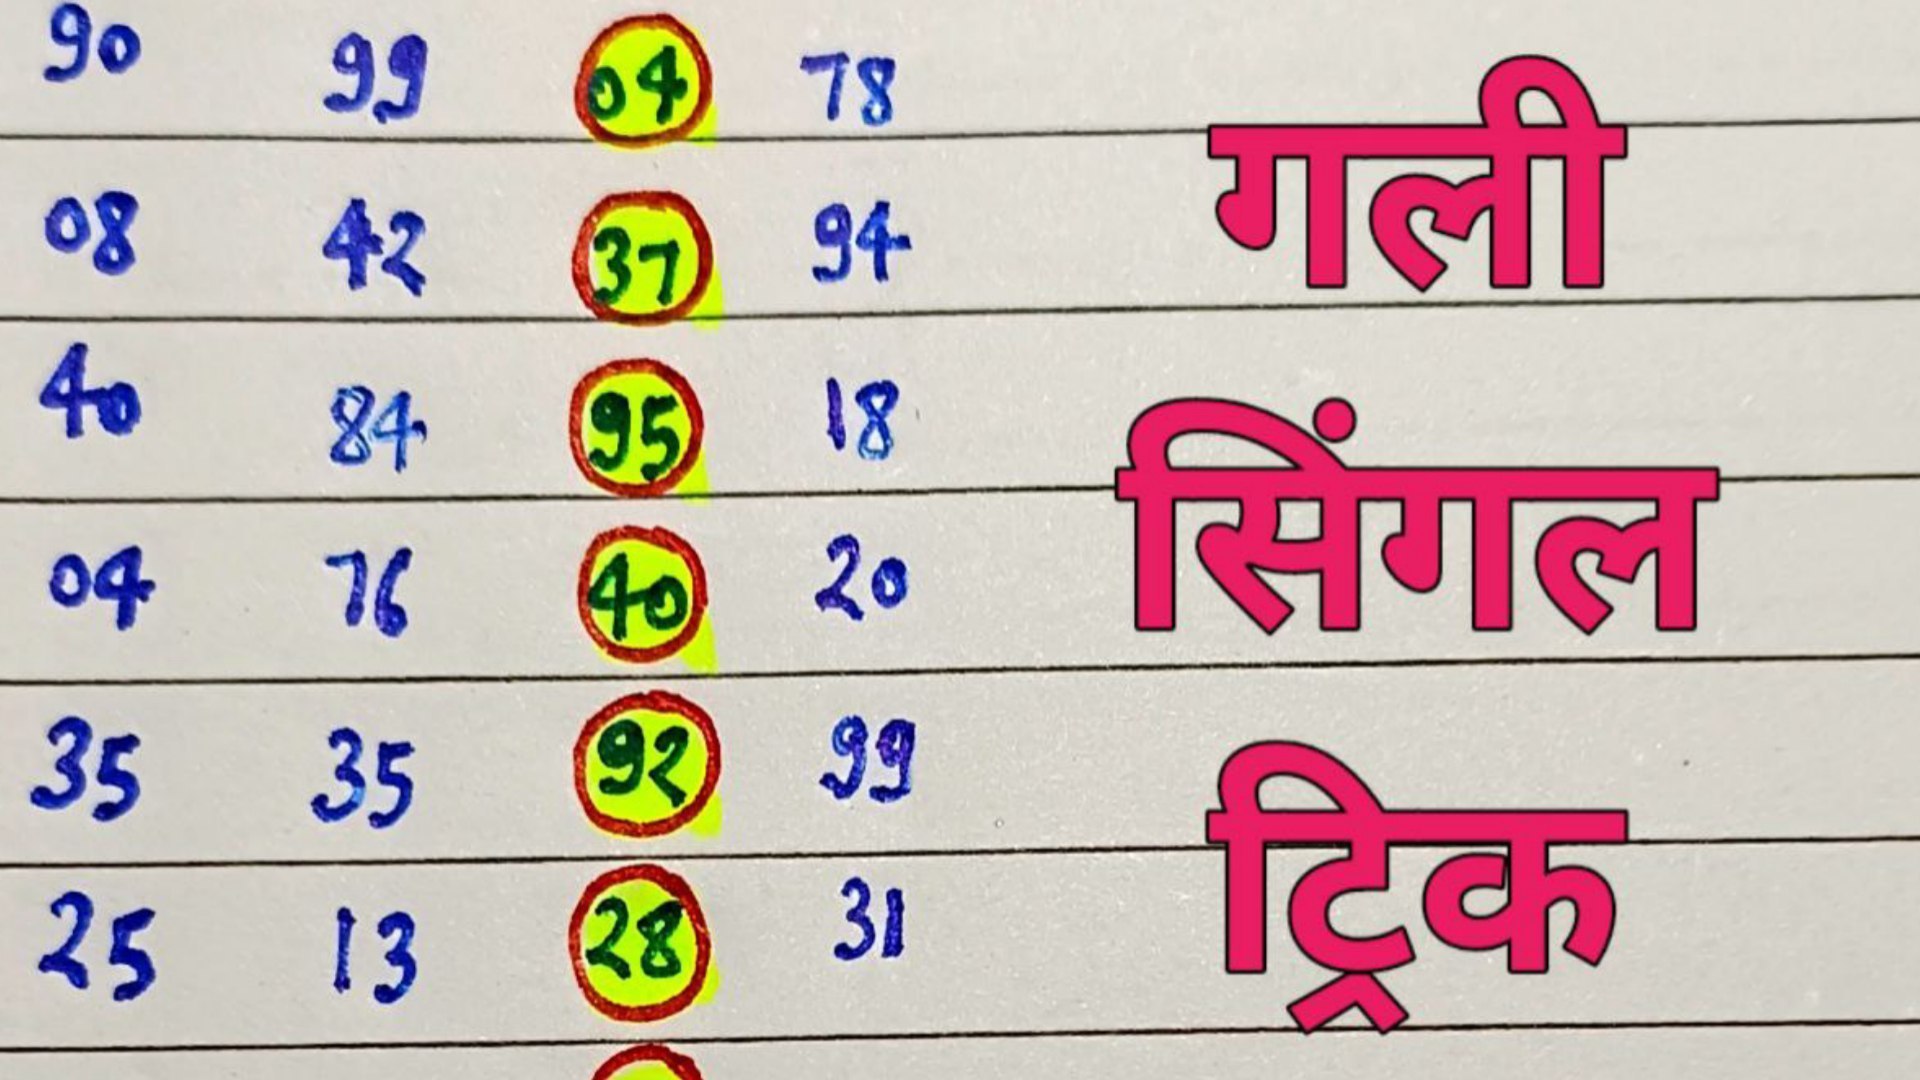 90 99 04 78
08 42 37 94
40 84 95 18
04 76 40 20
35 35 92 99
25 13 28 31
गली
सिंगल
ट्रिक